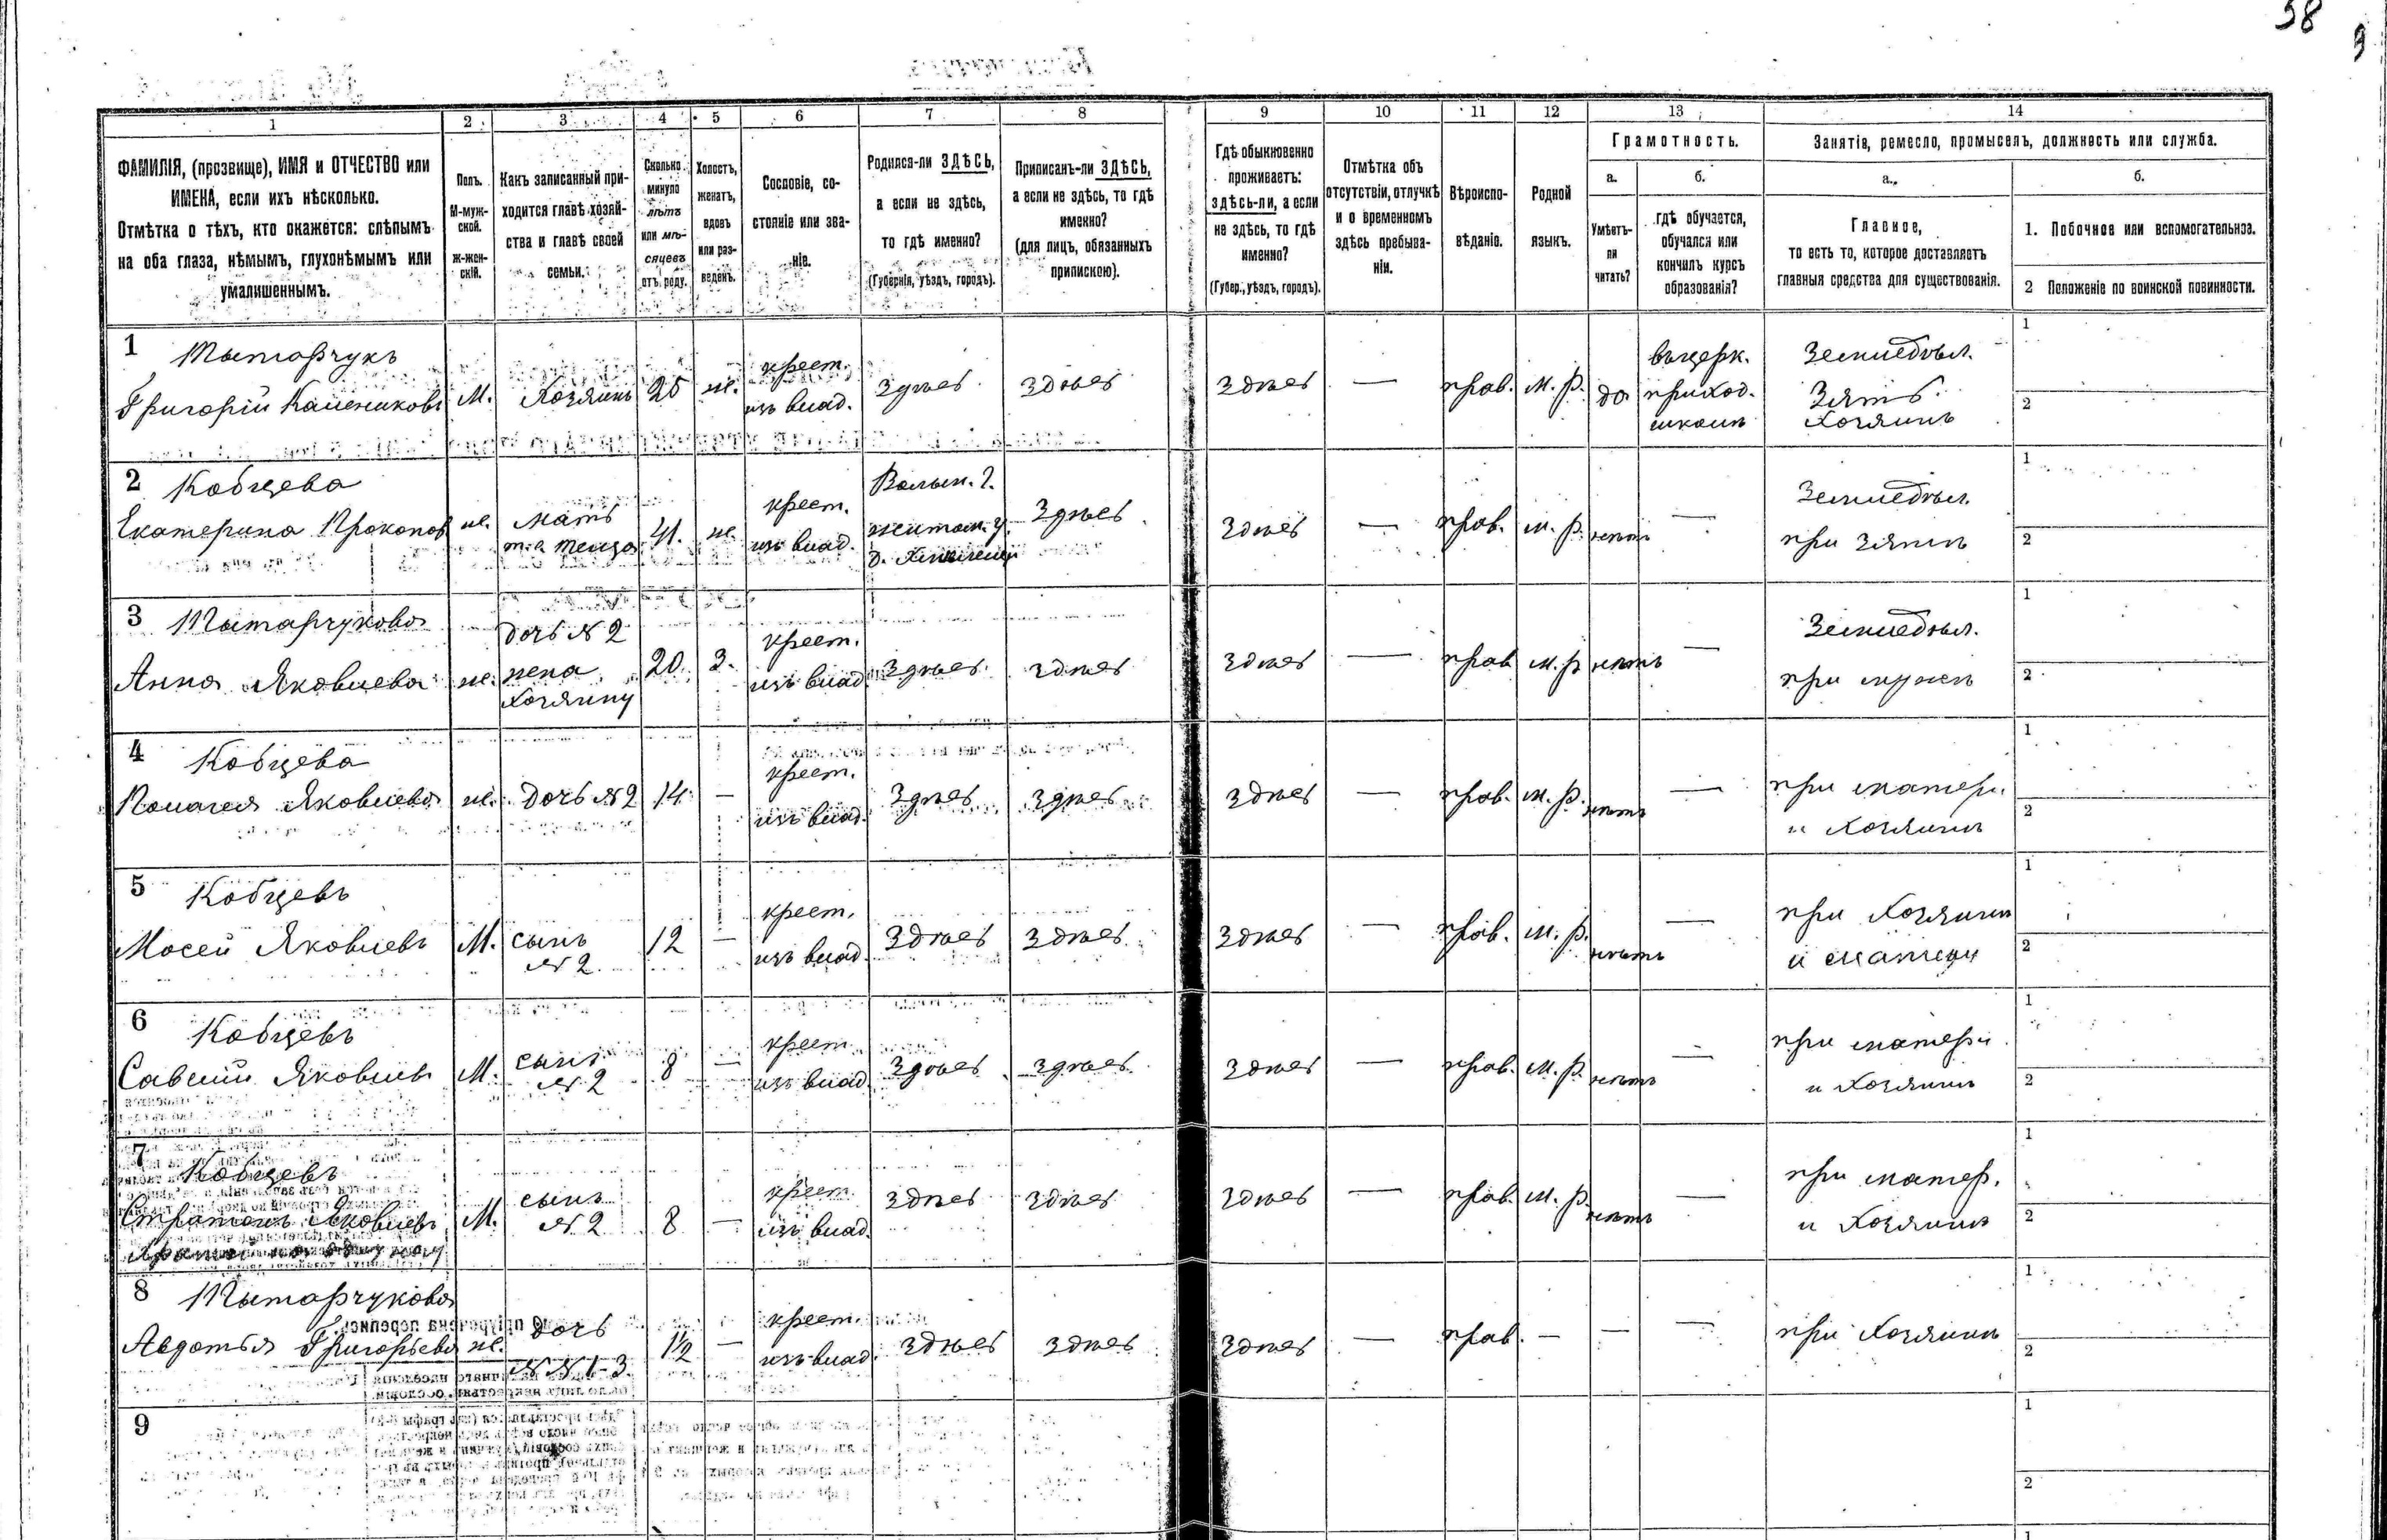 58
9
1 2 3 4 5 6 7 8 9 10 11 12 13 14
ФАМИЛІЯ, (прозвище), ИМЯ и ОТЧЕСТВО или
ИМЕНА, если ихъ нѣсколько.
Отмѣтка о тѣхъ, кто окажется: слѣпымъ
на оба глаза, нѣмымъ, глухонѣмымъ или
умалишеннымъ.
Полъ.
М-муж-
ской.
Ж-жен-
скій.
Какъ записанный при-
ходится главѣ хозяй-
ства и главѣ своей
семьи.
Сколько
минуло
лѣтъ
или мѣ-
сяцевъ
отъ роду.
Холостъ,
женатъ,
вдовъ
или раз-
веденъ.
Сословіе, со-
стояніе или зва-
ніе.
Родился-ли ЗДѢСЬ,
а если не здѣсь,
то гдѣ именно?
(Губернія, уѣздъ, городъ).
Приписанъ-ли ЗДѢСЬ,
а если не здѣсь, то гдѣ
именно?
(для лицъ, обязанныхъ
припискою).
Гдѣ обыкновенно
проживаетъ:
здѣсь-ли, а если
не здѣсь, то гдѣ
именно?
(Губер., уѣздъ, городъ).
Отмѣтка объ
отсутствіи, отлучкѣ
и о временномъ
здѣсь пребыва-
ніи.
Вѣроиспо-
вѣданіе.
Родной
языкъ.
Грамотность.
а.
Умѣетъ-
ли
читать?
б.
гдѣ обучается,
обучался или
кончилъ курсъ
образованія?
Занятія, ремесло, промыселъ, должность или служба.
а.
Главное,
то есть то, которое доставляетъ
главныя средства для существованія.
б.
1. Побочное или вспомогательное.
2 Положеніе по воинской повинности.
1 Тытарчукъ
Григорій Калениковъ
М.
Хозяинъ
25
ж.
крест.
изъ влад.
здѣсь
здѣсь
здѣсь
—
прав.
м. р.
да
въ церк.
приход.
школѣ
Земледѣл.
Зять
Хозяинъ
1
2
2 Кобцева
Екатерина Прокопов
ж.
мать
теща
41.
крест.
изъ влад.
Волын. г.
житом. у.
здѣсь
здѣсь
—
прав.
м. р.
нѣтъ
—
Земледѣл.
при зятѣ
1
2
3 Тытарчукова
Анна Яковлева
ж.
дочь № 2
жена
хозяину
20.
з.
крест.
изъ влад.
здѣсь
здѣсь
здѣсь
—
прав
м. р
нѣтъ
—
Земледѣл.
при мужѣ
1
2
4 Кобцева
Палагея Яковлева
ж.
дочь № 2
14
—
крест.
изъ влад.
здѣсь
здѣсь
здѣсь
—
прав.
м. р.
нѣтъ
—
при матери
и хозяинѣ
1
2
5 Кобцевъ
Мосей Яковлевъ
М.
сынъ
№ 2
12
—
крест.
изъ влад.
здѣсь
здѣсь
здѣсь
—
прав.
м. р.
нѣтъ
—
при хозяинѣ
и матери
1
2
6 Кобцевъ
Савелій Яковлевъ
М.
сынъ
№ 2
8
—
крест
изъ влад.
здѣсь
здѣсь
здѣсь
—
прав.
м. р.
нѣтъ
—
при матери
и хозяинѣ
1
2
7 Кобцевъ
Яковлевъ
М.
сынъ
№ 2
8
—
крест.
изъ влад.
здѣсь
здѣсь
здѣсь
—
прав.
м. р.
нѣтъ
—
при матер.
и хозяинѣ
1
2
8 Тытарчукова
Авдотья Григорьева
ж.
дочь
№№ 1-3
1/2
—
крест.
изъ влад.
здѣсь
здѣсь
здѣсь
—
прав.
—
—
—
при хозяинѣ
1
2
9
1
2
1